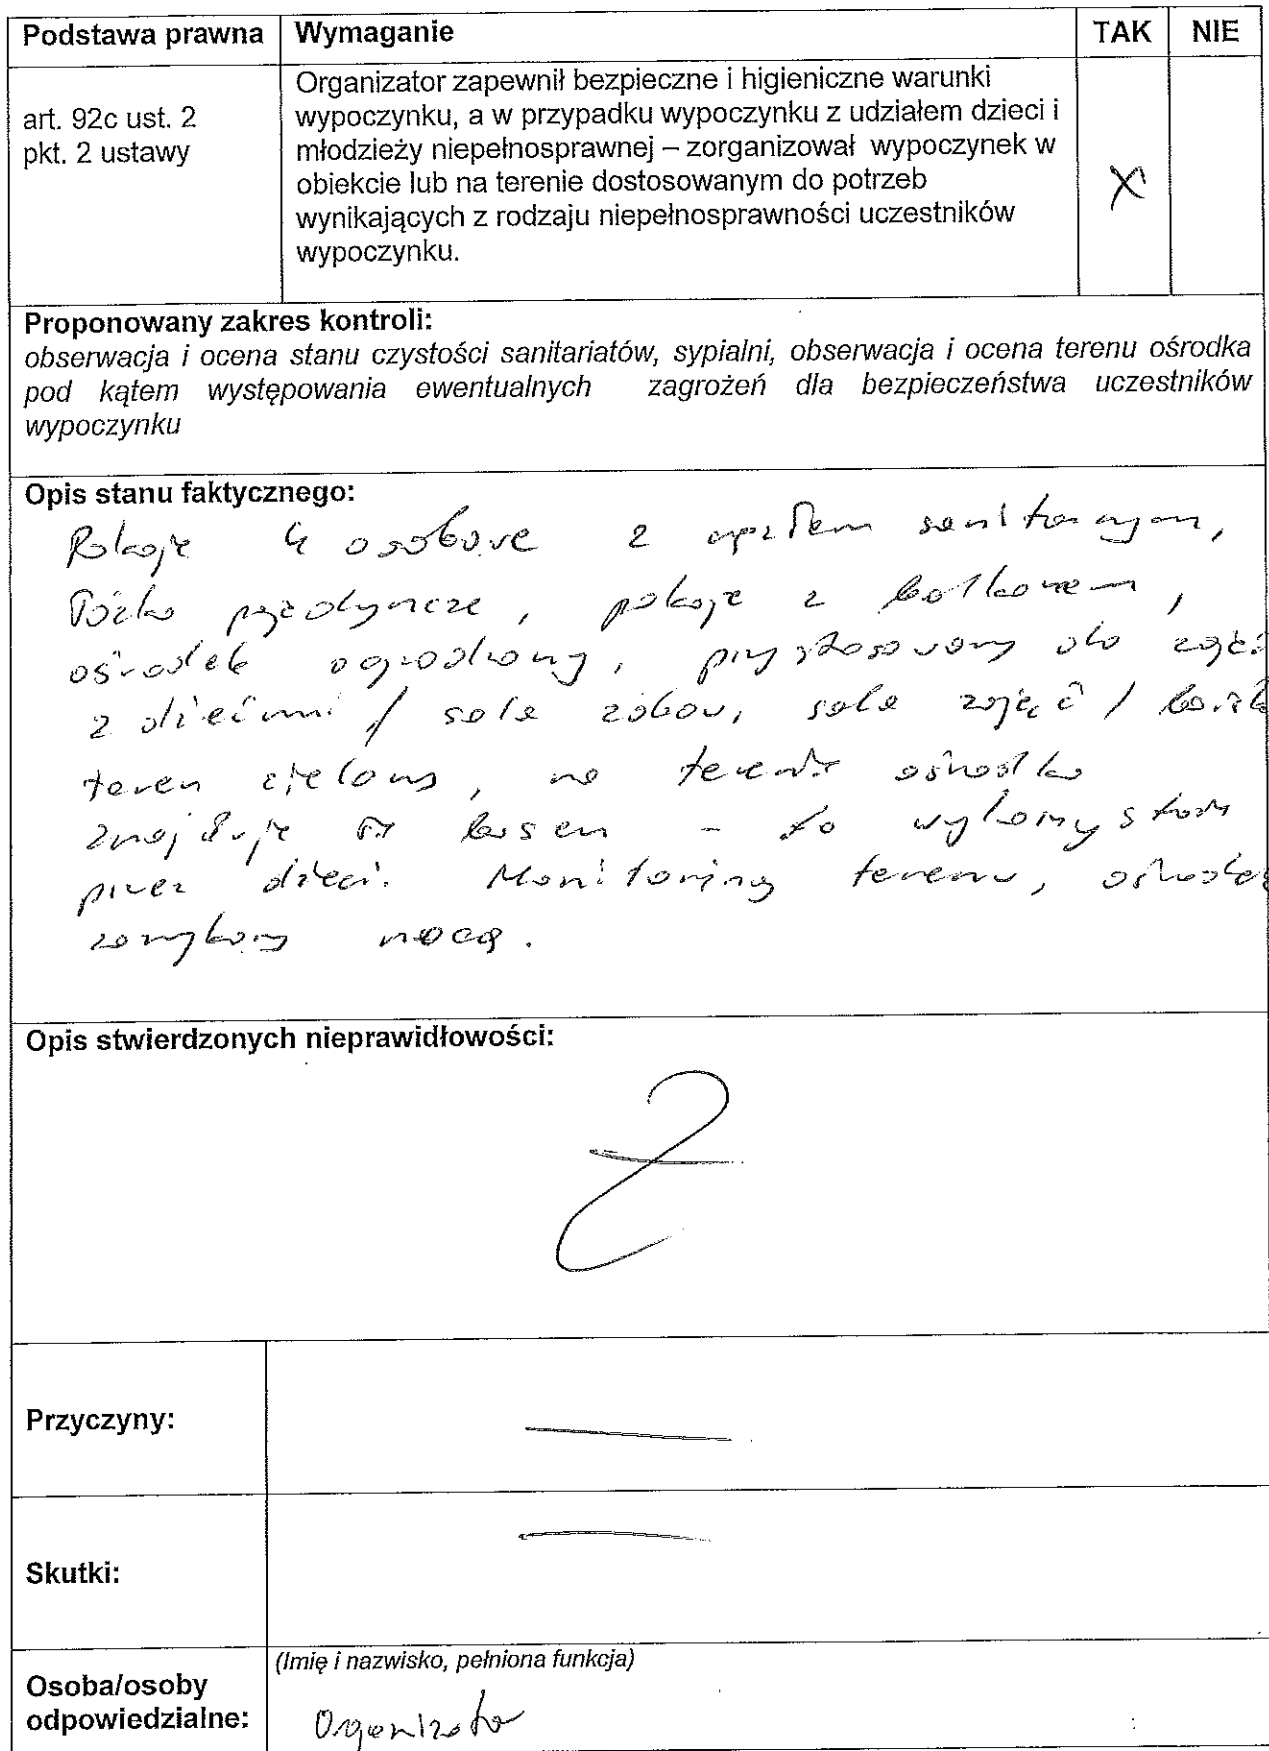 Podstawa prawna Wymaganie TAK NIE
art. 92c ust. 2
pkt. 2 ustawy
Organizator zapewnił bezpieczne i higieniczne warunki
wypoczynku, a w przypadku wypoczynku z udziałem dzieci i
młodzieży niepełnosprawnej – zorganizował wypoczynek w
obiekcie lub na terenie dostosowanym do potrzeb
wynikających z rodzaju niepełnosprawności uczestników
wypoczynku.
X
Proponowany zakres kontroli:
obserwacja i ocena stanu czystości sanitariatów, sypialni, obserwacja i ocena terenu ośrodka
pod kątem występowania ewentualnych zagrożeń dla bezpieczeństwa uczestników
wypoczynku
Opis stanu faktycznego:
Pokoje 4 osobowe z węzłem sanitarnym,
łóżka pojedyncze, pokoje z balkonem,
ośrodek ogrodzony, przystosowany do zajęć
z dziećmi / sala zabaw, sala zajęć /
teren zielony, na terenie ośrodka
znajduje się basen - do wykorzystania
przez dzieci. Monitoring terenu, ośrodek
zamykany nocą.
Opis stwierdzonych nieprawidłowości:
Przyczyny: —
Skutki: —
Osoba/osoby
odpowiedzialne:
(Imię i nazwisko, pełniona funkcja)
Organizator